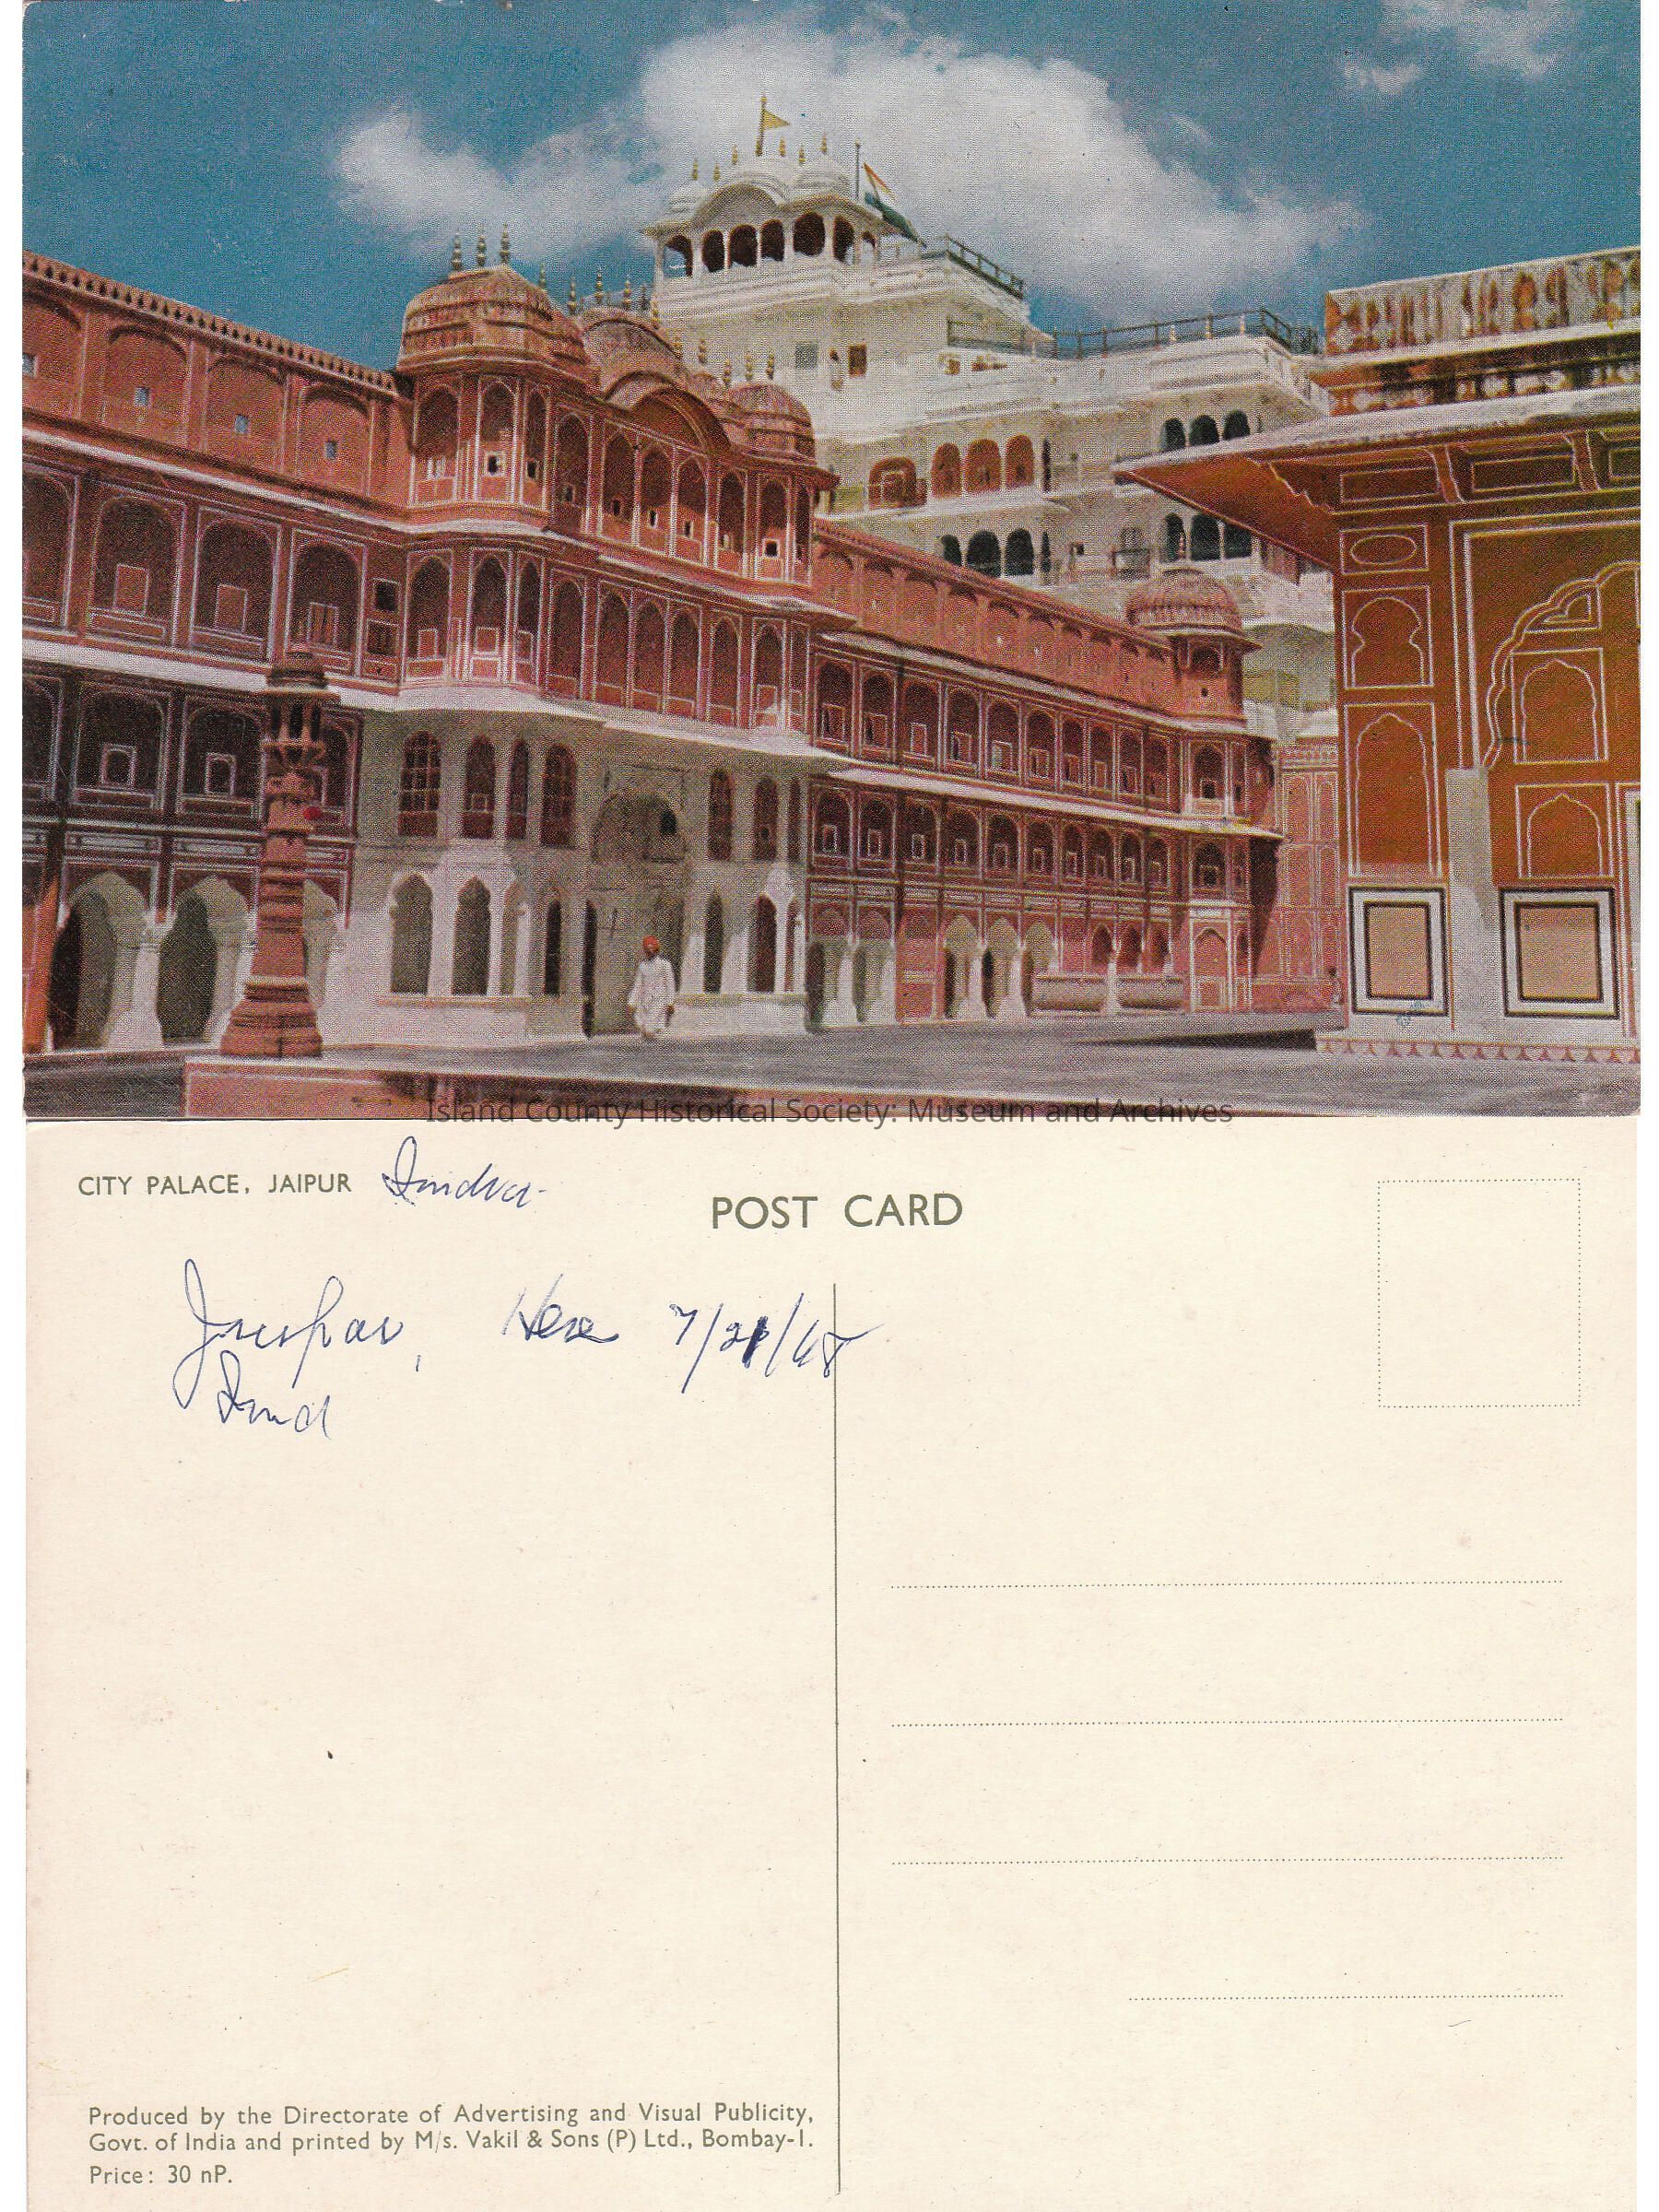 Island County Historical Society: Museum and Archives
CITY PALACE, JAIPUR India
POST CARD
Jaipur, Here 7/21/68
Ind
Produced by the Directorate of Advertising and Visual Publicity,
Govt. of India and printed by M/s. Vakil & Sons (P) Ltd., Bombay-1.
Price: 30 nP.